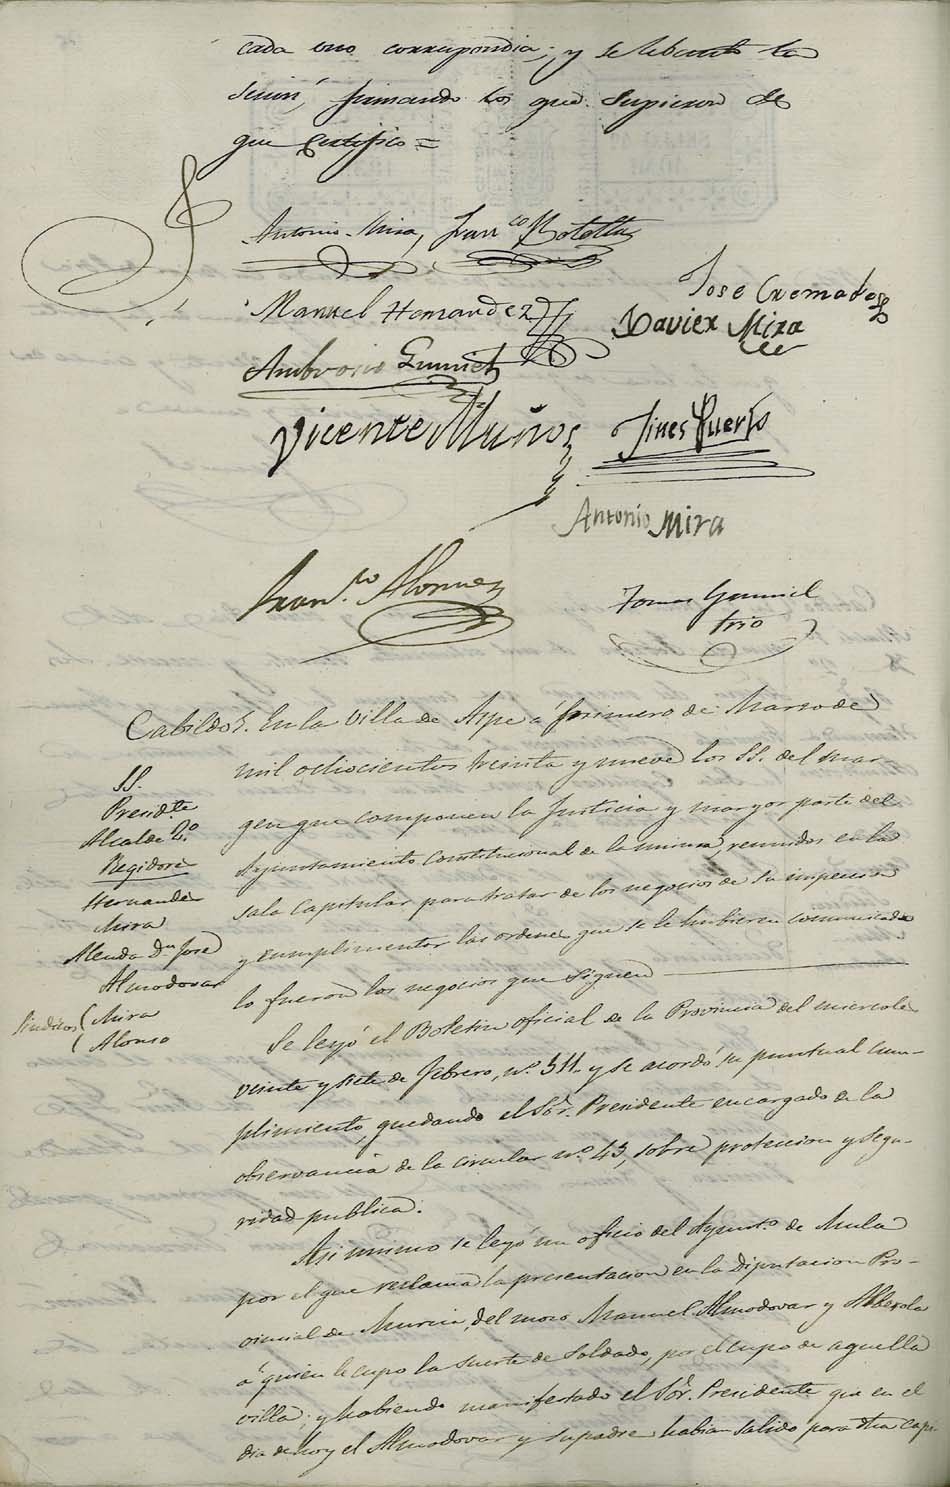 cada uno correspondia; y se lebantó la
Sesion, firmando los que Supieron de
que Certifico =
Antonio Mira, Franco Botella
Manuel Hernandez
Jose Cremades
Xavier Mira
Ambrosio
Vicente Muños
Jines Puerto
Antonio Mira
Franco Alonso
Tomas Gumiel
trio
Cabildo. En la Villa de Aspe á primero de Marzo de
mil ochocientos treinta y nueve los SS. del mar
gen que componen la Justicia y mayor parte del
Ayuntamiento Constitucional de la misma, reunidos en la
sala Capitular para tratar de los negocios de su impeccion
y cumplimentar las ordenes que se le hubieren comunicado
lo fueron los negocios que Siguen
SS.
Presidte
Alcalde 2o
Regidores
Hernandez
Mira
Almda Dn José
Almodovar
Sindicos Mira
Alonso
Se leyó el Boletin oficial de la Provincia del miercoles
veinte y siete de febrero, no. 511 y se acordó su puntual cum-
plimiento, quedando el Sor. Presidente encargado de la
observancia de la circular no. 43, sobre proteccion y segu-
ridad publica.
Asi mismo se leyó un oficio del Ayunto de Mula
por el que reclama la presentacion en la Diputacion Pro-
vincial de Murcia, del mozo Manuel Almodovar y Alberola
á quien le cupo la suerte de Soldado, por el cupo de aquella
villa; y habiendo manifestado el Sor. Presidente que en el
dia de hoy el Almodovar y su padre habian salido para dha capi-